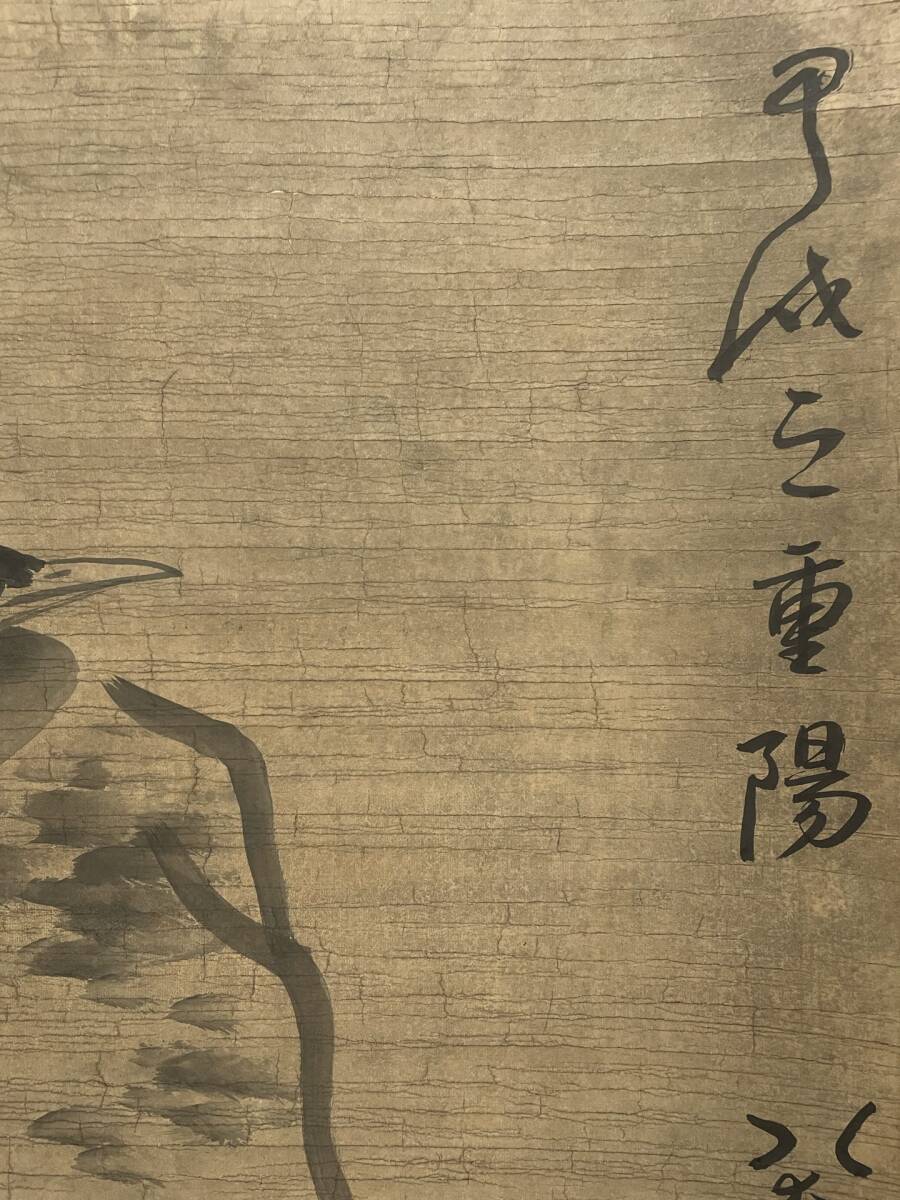 甲戌之重陽八